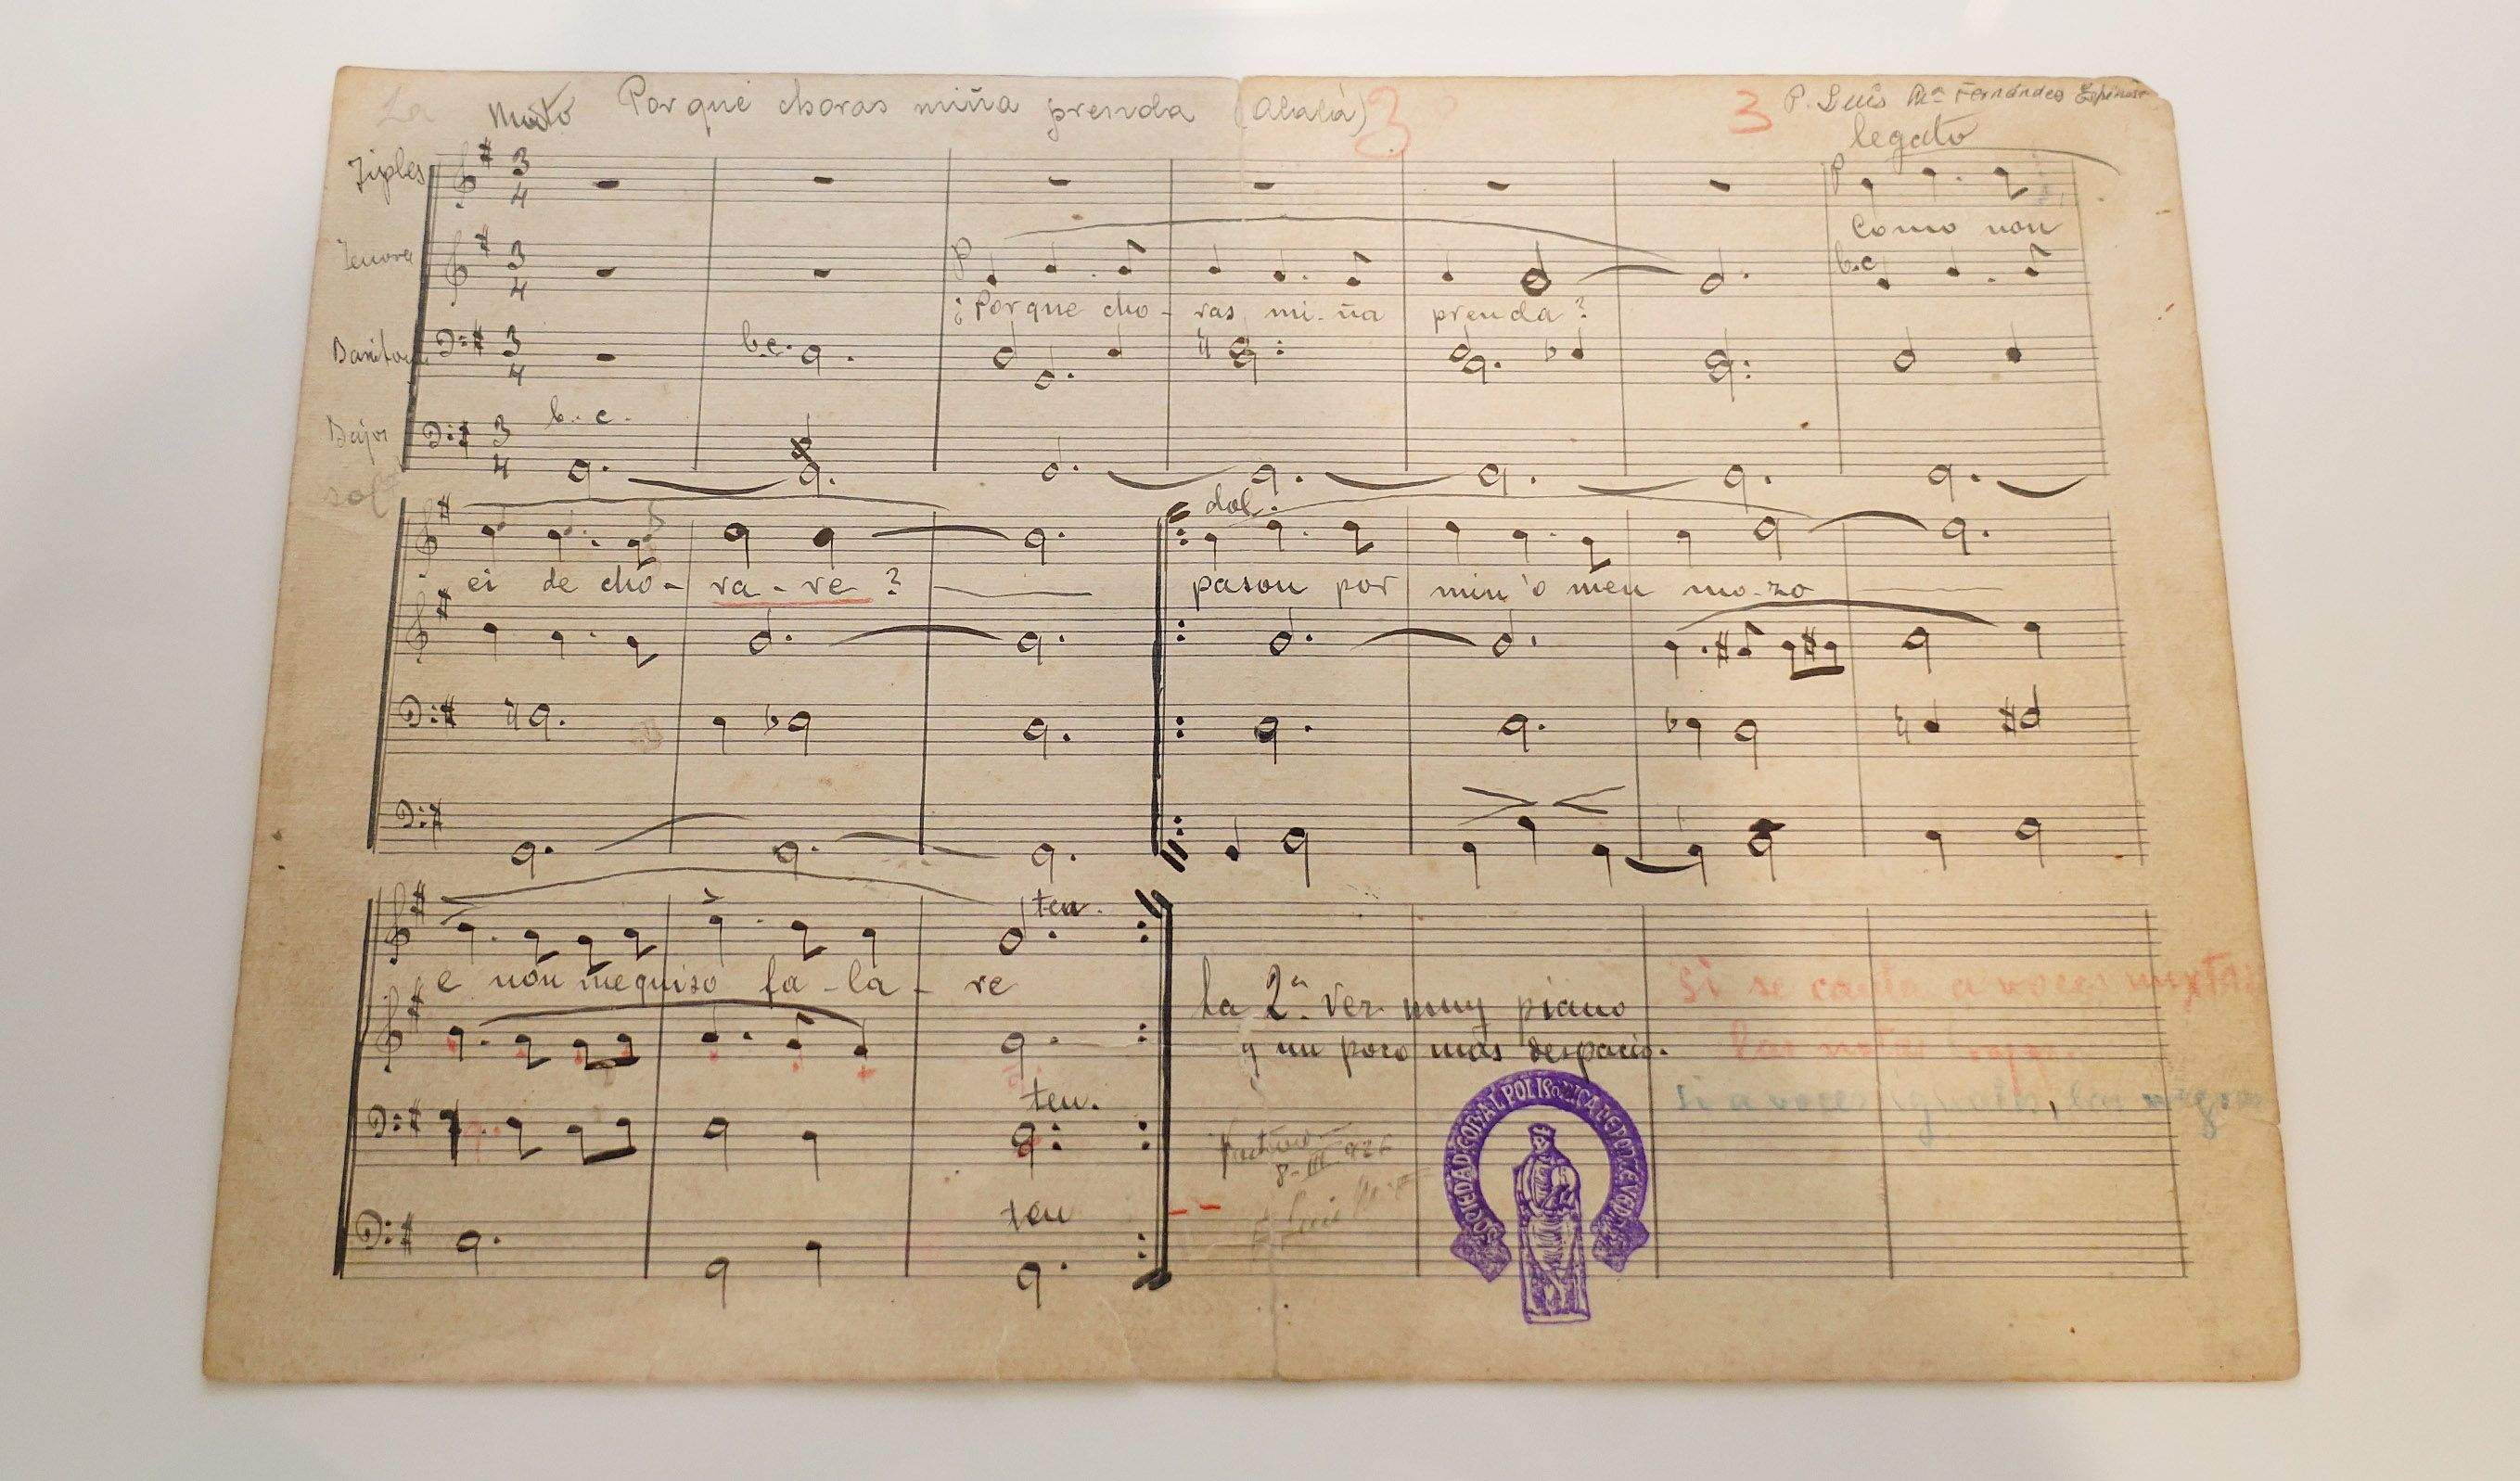 La Mixto Porque choras miña prenda (Alalá) 3 3 P. Luis Mª Fernández Espinosa
legato
Tiples 3 4 p
Como non
Tenores 3 4 p b.c.
¿Porque cho-ras mi-ña prenda?
Baritonos 3 4 b.c.
Bajos 3 4 b.c.
dol.
ei de cho-ra-re? pasou por min'o meu mo-zo
ten.
e non me quiso fa-la-re
La 2ª vez muy piano
y un poco más despacio.
Si se canta a voces mixtas
la nota roja.
Si a voces iguales, las negras
ten.
8-III-926
ten
SOCIEDAD CORAL POLIFONICA DE PONTEVEDRA